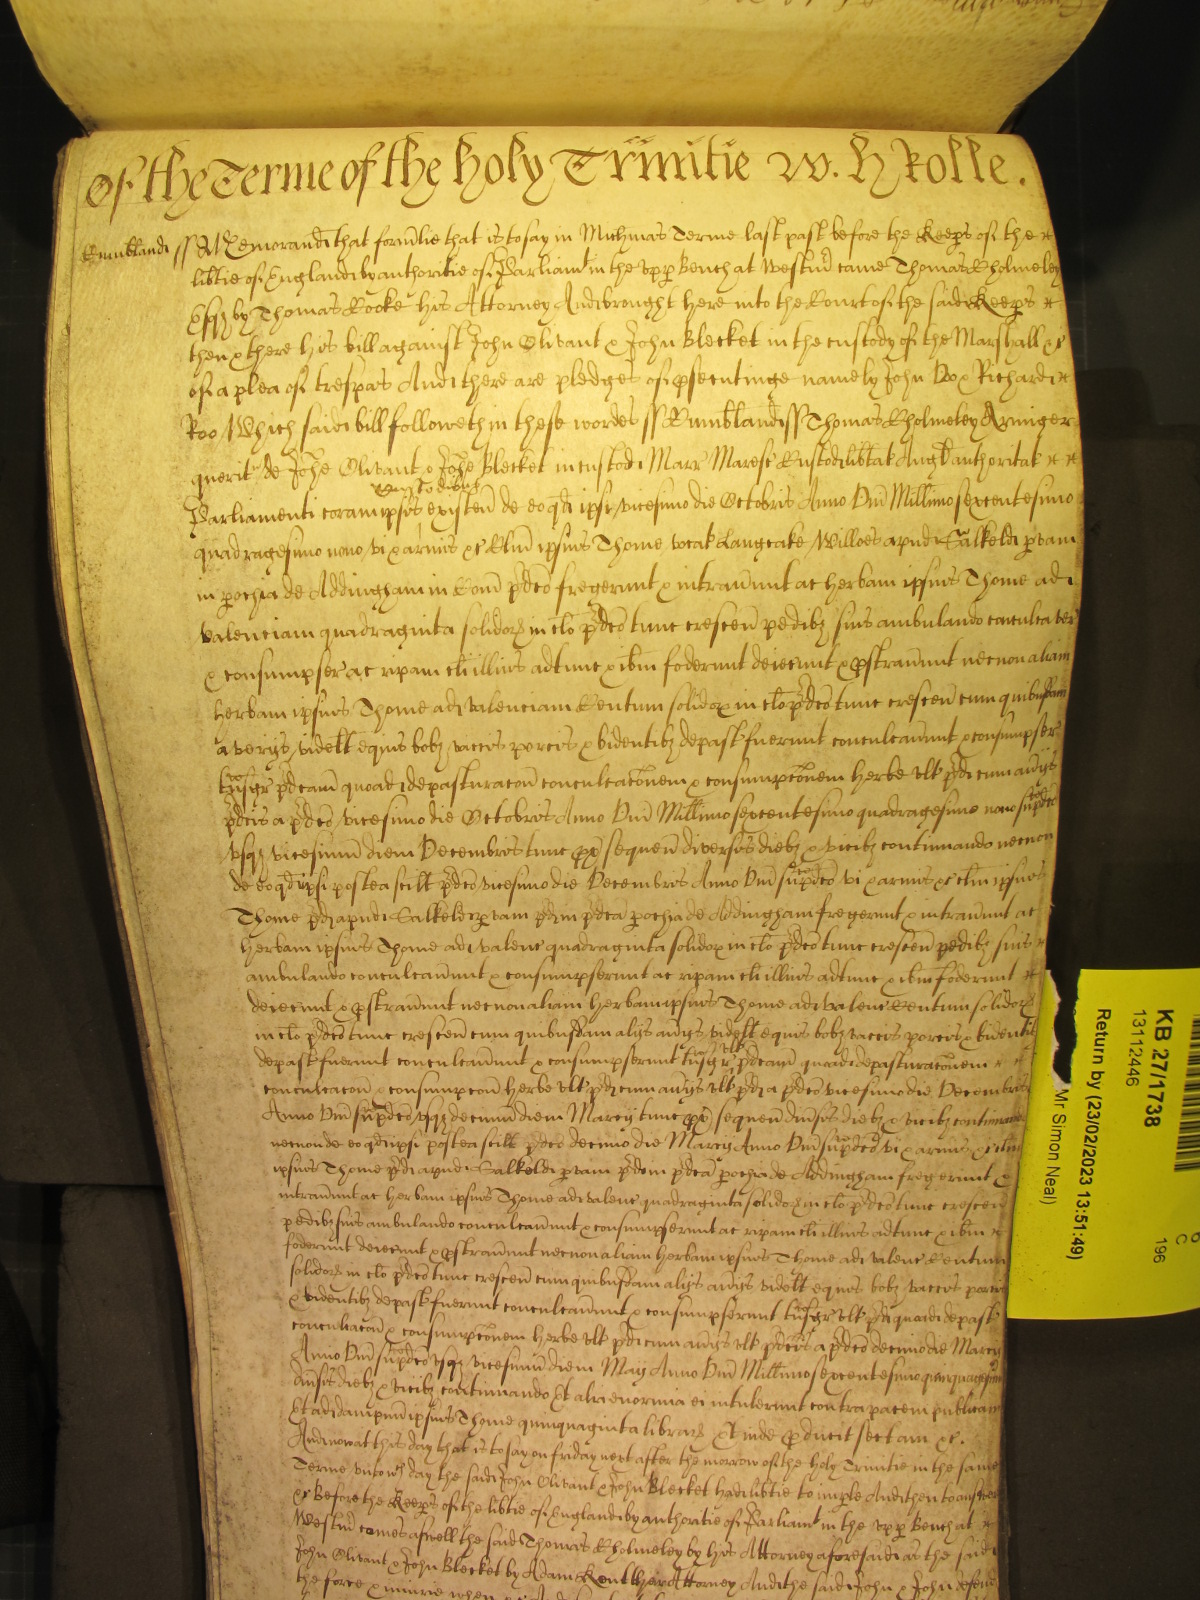 Of the Terme of the holy Trinitie W. h Rolle.
Cumbland ss Memorand that formlie that is to say in Michmas Terme last past before the Keeps of the
libtie of England by authoritie of Parliamt in the vpp Bench at Westmd came Thomas Cholmeley
Esqz by Thomas Cooke his Attorney And brought here into the Court of the said Keeps
then & there his bill against John Olivant & John Blecket in the custody of the Marshall &c
of a plea of trespas And there are pledges of psecutinge namely John Doo & Richard
Roo Which said bill followeth in these wordes ss Cumbland ss Thomas Cholmeley Armiger
querit de Johe Olivant & Johe Blecket in custod Marr Maresc Custod libtat Angl authoritat
Custodibus
Parliamenti coram ipsis existen de eo qd ipsi vicesimo die Octobris Anno Dni Millimo sexcentesimo
quadragesimo nono vi & armis &c Clm ipsius Thome vocat Langcake Willoes apud Salkeld pvam
in pochia de Addingham in Com pdco fregerunt & intraunt ac herbam ipsius Thome ad
valenciam quadraginta solidor in clo pdco tunc crescen pedibz suis ambulando conculcaver
& consumpser ac ripam cli illius adtunc & ibm foderunt deiecerunt & pstraunt necnon aliam
herbam ipsius Thome ad valenciam Centum solidor in clo pdco tunc crescen cum quibusdam
averijs videlt equis bobz vaccis porcis & bidentibz depast fuerunt conculcaunt & consumpser
tnsgr pdcam quoad depasturacon conculcaconem & consumpconem herbe vlt pd cum avijs
pdcis a pdco vicesimo die Octobris Anno Dni Millimo sexcentesimo quadragesimo nono supdco
vsqz vicesimum diem Decembris tunc px sequen diversis diebz & vicibz continuando necnon
de eo qd ipsi postea scilt pdco vicesimo die Decembris Anno Dni supdco vi & armis &c clm ipsius
Thome pd apud Salkeld pvam pd in pdca pochia de Addingham fregerunt & intraunt ac
herbam ipsius Thome ad valenc quadraginta solidor in clo pdco tunc crescen pedibz suis
ambulando conculcaunt & consumpserunt ac ripam cli illius adtunc & ibm foderunt
deiecerunt & pstraunt necnon aliam herbam ipsius Thome ad valenc Centum solidor
in clo pdco tunc crescen cum quibusdam alijs avijs videlt equis bobz vaccis porcis & bident
depast fuerunt conculcaunt & consumpserunt tnsgr vlt pdcam quoad depasturaconem
conculcacon & consumpcon herbe vlt pd cum avijs vlt pd a pdco vicesimo die Decembris
Anno Dni supdco vsqz decimum diem Marcij tunc px sequen divsis diebz & vicibz continuand
necnon de eo qd ipsi postea scilt pdco decimo die Marcij Anno Dni supdco vi & armis &c clm
ipsius Thome pd apud Salkeld pvam pd in pdca pochia de Addingham fregerunt &
intraunt ac herbam ipsius Thome ad valenc quadraginta solidor in clo pdco tunc crescen
pedibz suis ambulando conculcaunt & consumpserunt ac ripam cli illius adtunc & ibm
foderunt deiecerunt & pstraunt necnon aliam herbam ipsius Thome ad valenc Centum
solidor in clo pdco tunc crescen cum quibusdam alijs avijs videlt equis bobz vaccis porcis
& bidentibz depast fuerunt conculcaunt & consumpserunt tnsgr vlt pd quoad depast
conculcacon & consumpconem herbe vlt pd cum avijs vlt pdcis a pdco decimo die Marcij
Anno Dni supdco vsqz vicesimum diem Maij Anno Dni Millimo sexcentesimo quinquagesimo
divsis diebz & vicibz continuando Et alia enormia ei intulerunt contra pacem publicam
Et ad dampnum ipsius Thome quinquaginta librar Et inde pducit sectam &c.
And now at this day that is to say on friday next after the morrow of the holy Trinitie in the same
Terme vntill wch day the said John Olivant & John Blecket had libtie to imple And then to answer
&c Before the Keeps of the libtie of England by authoritie of Parliamt in the vpp Bench at
Westmd comes aswell the said Thomas Cholmeley by his Attorney aforesaid as the said
John Olivant & John Blecket by Adam Kent their Attorney And the said John & John defend
the force & iniurie when
KB 27/1738
13112446
Return by (23/02/2023 13:51:49)
Mr Simon Neal)
C
196